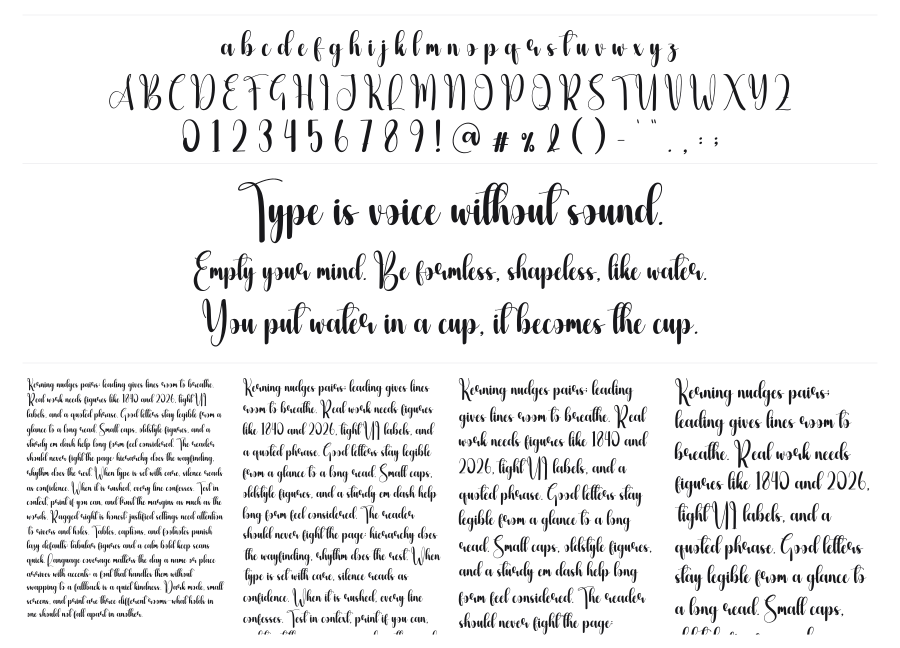 a b c d e f g h i j k l m n o p q r s t u v w x y z
A B C D E F G H I J K L M N O P Q R S T U V W X Y Z
0 1 2 3 4 5 6 7 8 9 ! @ # % & ( ) - ' " . , : ;
Type is voice without sound.
Empty your mind. Be formless, shapeless, like water.
You put water in a cup, it becomes the cup.
Kerning nudges pairs; leading gives lines room to breathe.
Real work needs figures like 1840 and 2026, tight UI
labels, and a quoted phrase. Good letters stay legible from a
glance to a long read. Small caps, oldstyle figures, and a
sturdy em dash help long form feel considered. The reader
should never fight the page; hierarchy does the wayfinding,
rhythm does the rest. When type is set with care, silence reads
as confidence. When it is rushed, every line confesses. Test in
context, print if you can, and trust the margins as much as the
words. Ragged right is honest; justified settings need attention
to rivers and holes. Tables, captions, and footnotes punish
lazy defaults; tabular figures and a calm bold keep scans
quick. Language coverage matters the day a name or place
arrives with accents; a font that handles them without
swapping to a fallback is a quiet kindness. Dark mode, small
screens, and print are three different rooms—what holds in
one should not fall apart in another.
Kerning nudges pairs; leading gives lines
room to breathe. Real work needs figures
like 1840 and 2026, tight UI labels, and
a quoted phrase. Good letters stay legible
from a glance to a long read. Small caps,
oldstyle figures, and a sturdy em dash help
long form feel considered. The reader
should never fight the page; hierarchy does
the wayfinding, rhythm does the rest. When
type is set with care, silence reads as
confidence. When it is rushed, every line
confesses. Test in context, print if you can,
Kerning nudges pairs; leading
gives lines room to breathe. Real
work needs figures like 1840 and
2026, tight UI labels, and a
quoted phrase. Good letters stay
legible from a glance to a long
read. Small caps, oldstyle figures,
and a sturdy em dash help long
form feel considered. The reader
should never fight the page;
Kerning nudges pairs;
leading gives lines room to
breathe. Real work needs
figures like 1840 and 2026,
tight UI labels, and a
quoted phrase. Good letters
stay legible from a glance to
a long read. Small caps,